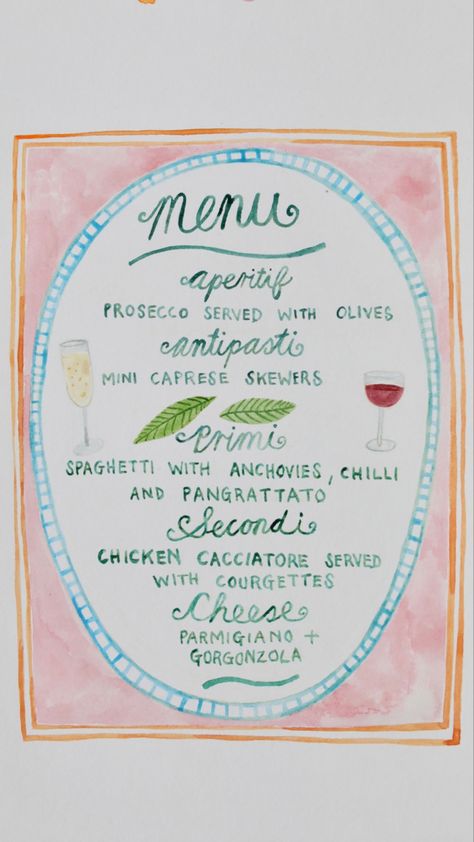 menu
aperitif
PROSECCO SERVED WITH OLIVES
antipasti
MINI CAPRESE SKEWERS
Primi
SPAGHETTI WITH ANCHOVIES, CHILLI
AND PANGRATTATO
Secondi
CHICKEN CACCIATORE SERVED
WITH COURGETTES
Cheese
PARMIGIANO +
GORGONZOLA